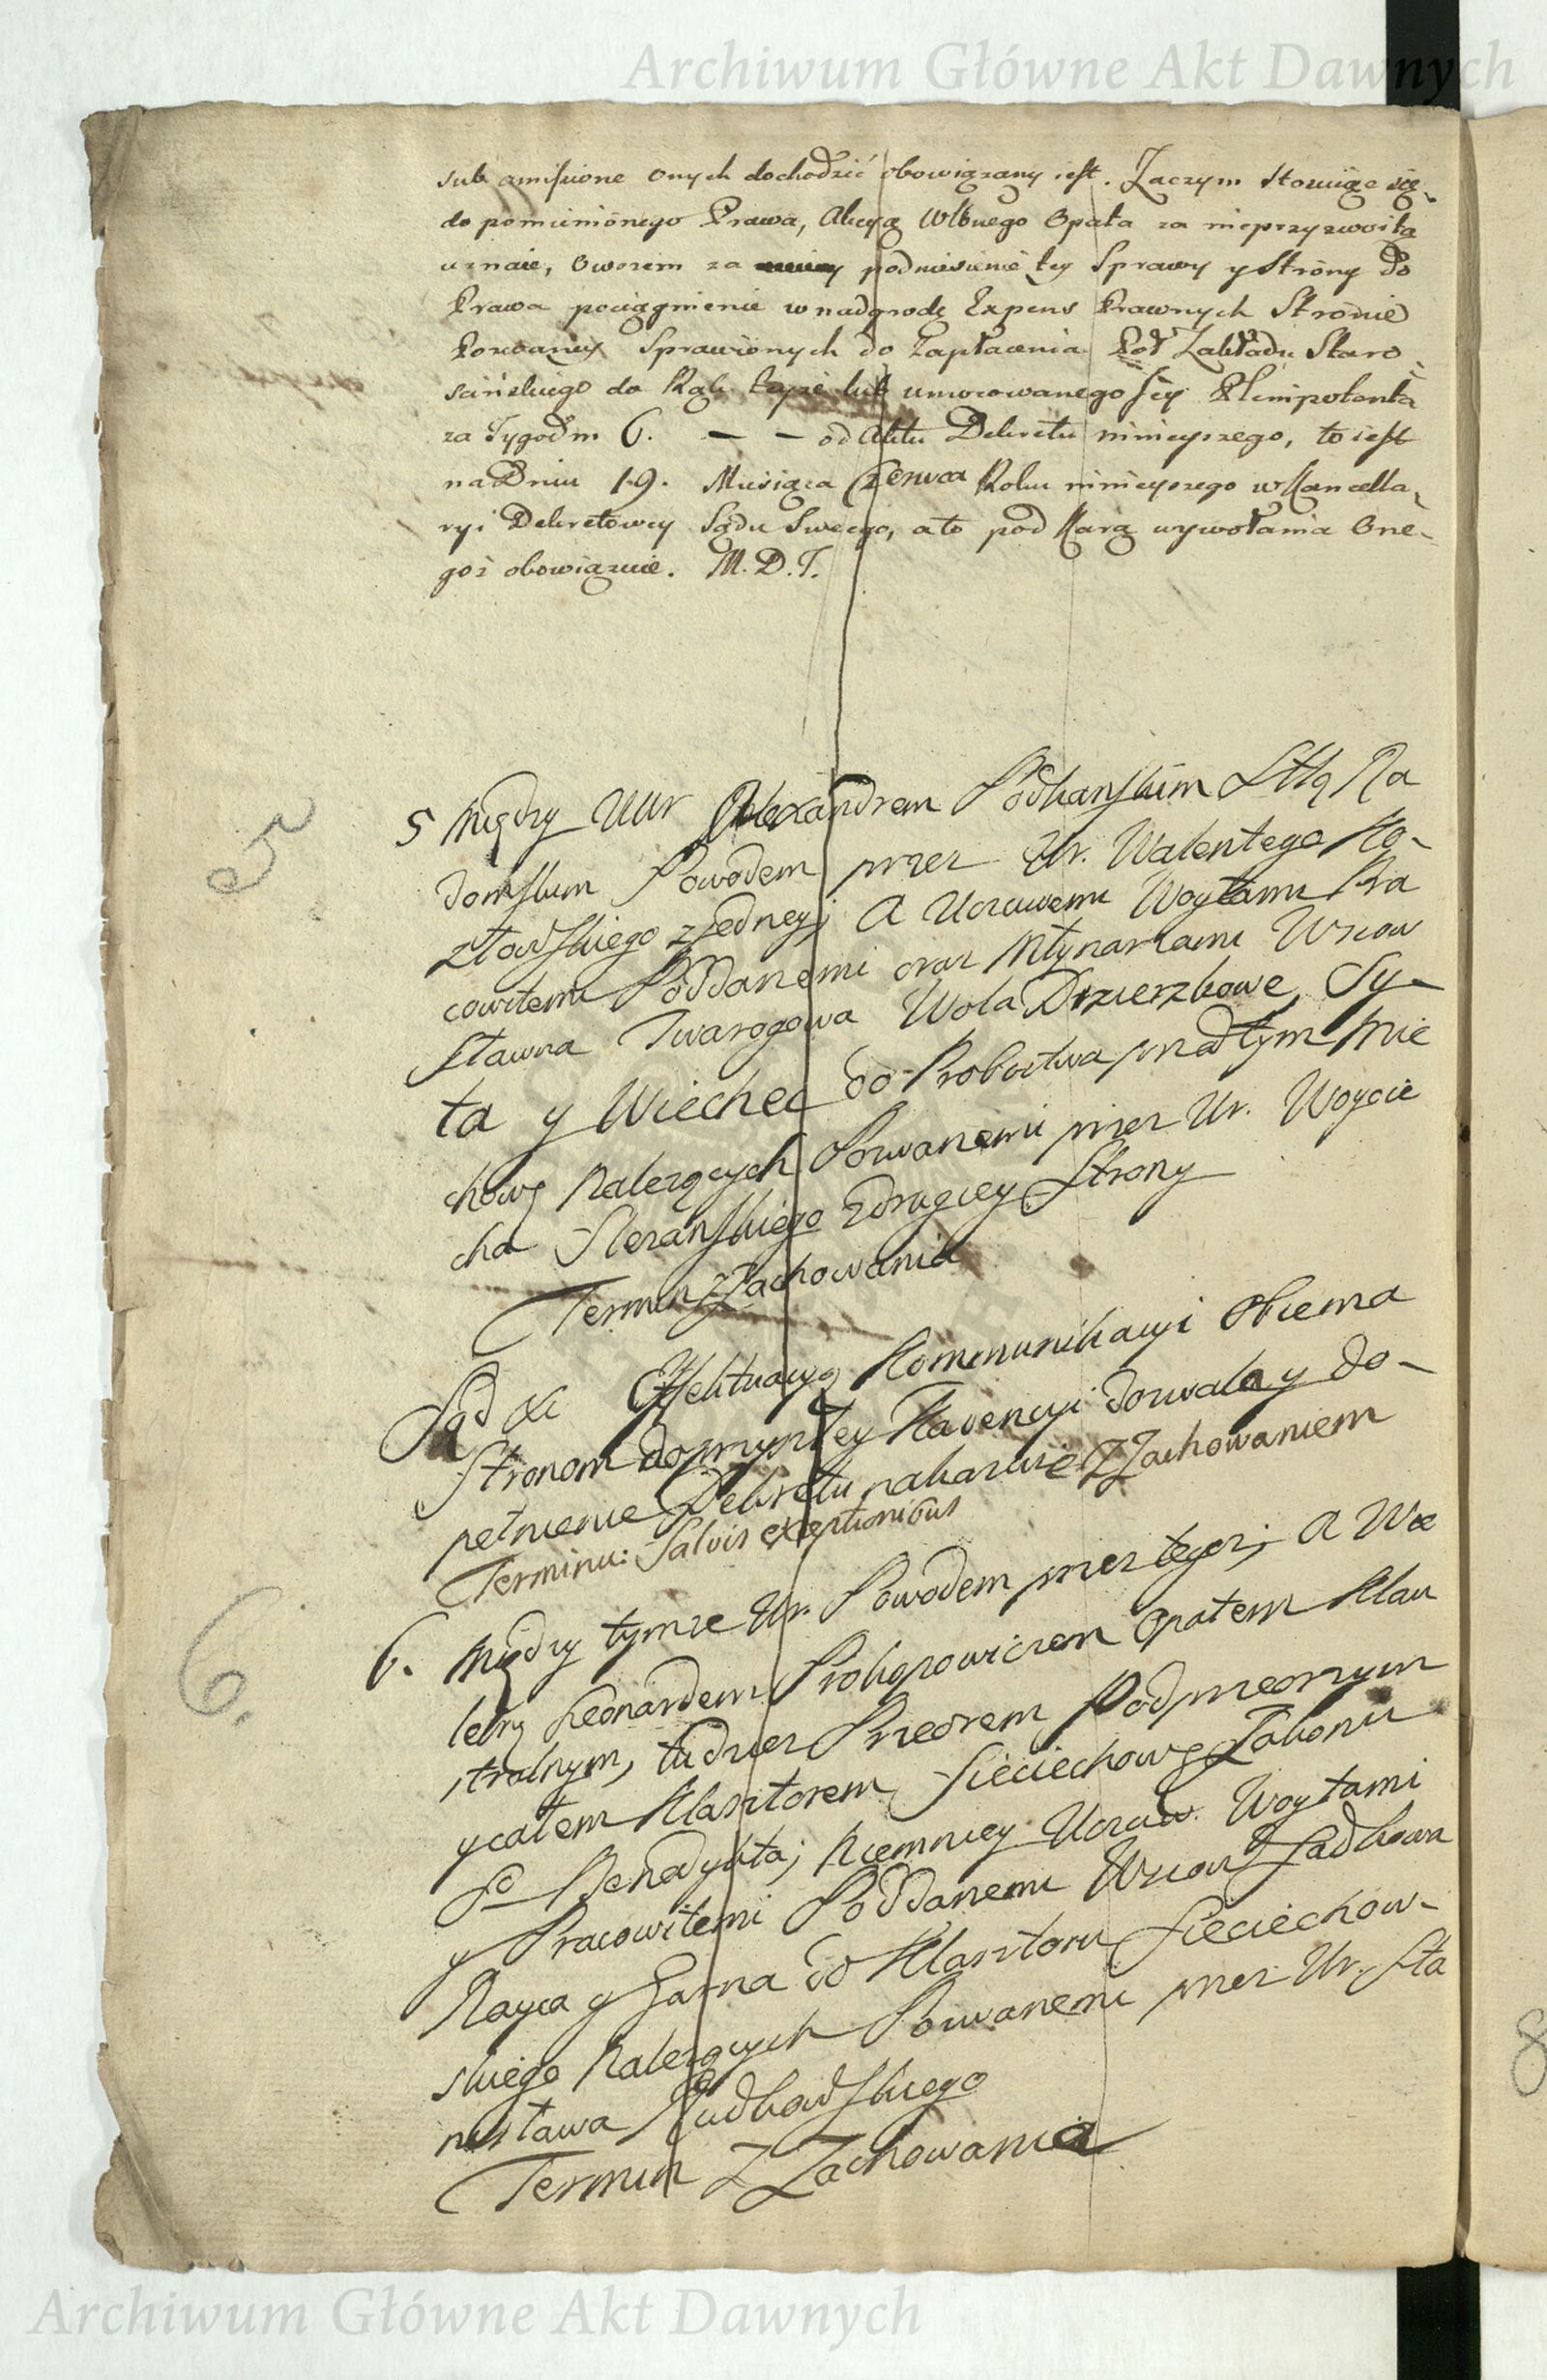 Archiwum Główne Akt Dawnych
sub amissione onych dochodzić obowiązany iest. Zaczym stosuiąc się
do pomienionego Prawa, Akcyą Wlbnego Opata za nieprzyzwoitą
uznaie, owszem za podniesienie tey Sprawy y Strony do
Prawa pociągnienie w nadgrodę Expens Prawnych Stronie
Pozwaney Sprawionych do Zapłacenia Pod Zakładu Staro
ścińskiego do Rąk teyże lub umocowanego Jey Plenipotenta
za Tygodni 6. — — od Aktu Dekretu ninieyszego, to iest
na Dniu 19. Miesiąca Czerwca Roku ninieyszego w Kancella-
ryi Dekretowey Sądu Swego, a to pod Karą wywołania One-
goż obowiązuie. M. D. T.
5
5 Między Ur Alexandrem Podkanskim Sttą Ra
domskim Powodem przez Ur. Walentego Ko-
złowskiego z jedney; A Uczciwemi Woytami Pra
cowitemi Poddanemi oraz Młynarzami Wsiow
Sławna Twarogowa Wola Dzierzkowe, Sy-
ta y Wiechec do Probostwa przed tym Mie
chowsk Należących Pozwanemi przez Ur. Woycie
cha zdrugiey Strony
Termin z Zachowania
Sąd &c Effektuacyą Kommunikacyi Obiema
Stronom do przyszłey Kadencyi dozwala y do-
pełnienie Dekretu nakazuie z Zachowaniem
Terminu: Salvis exceptionibus
6.
6. Między tymże Ur. Powodem przez tegoż; A Wie
lebny Leonardem Prokopowiczem Opatem Klau
stralnym, tudziez Przeorem Podprzeorzym
y całem Klasztorem Sieciechows Zakonu
So Benedykta; Niemniey Uczciw. Woytami
y Pracowitemi Poddanemi Wsiow Sadkowa
Rayca y Garna do Klasztoru Sieciechow-
skiego Należących Pozwanemi przez Ur. Sta
nisława Rudkowskiego
Termin z Zachowania
8
Archiwum Główne Akt Dawnych